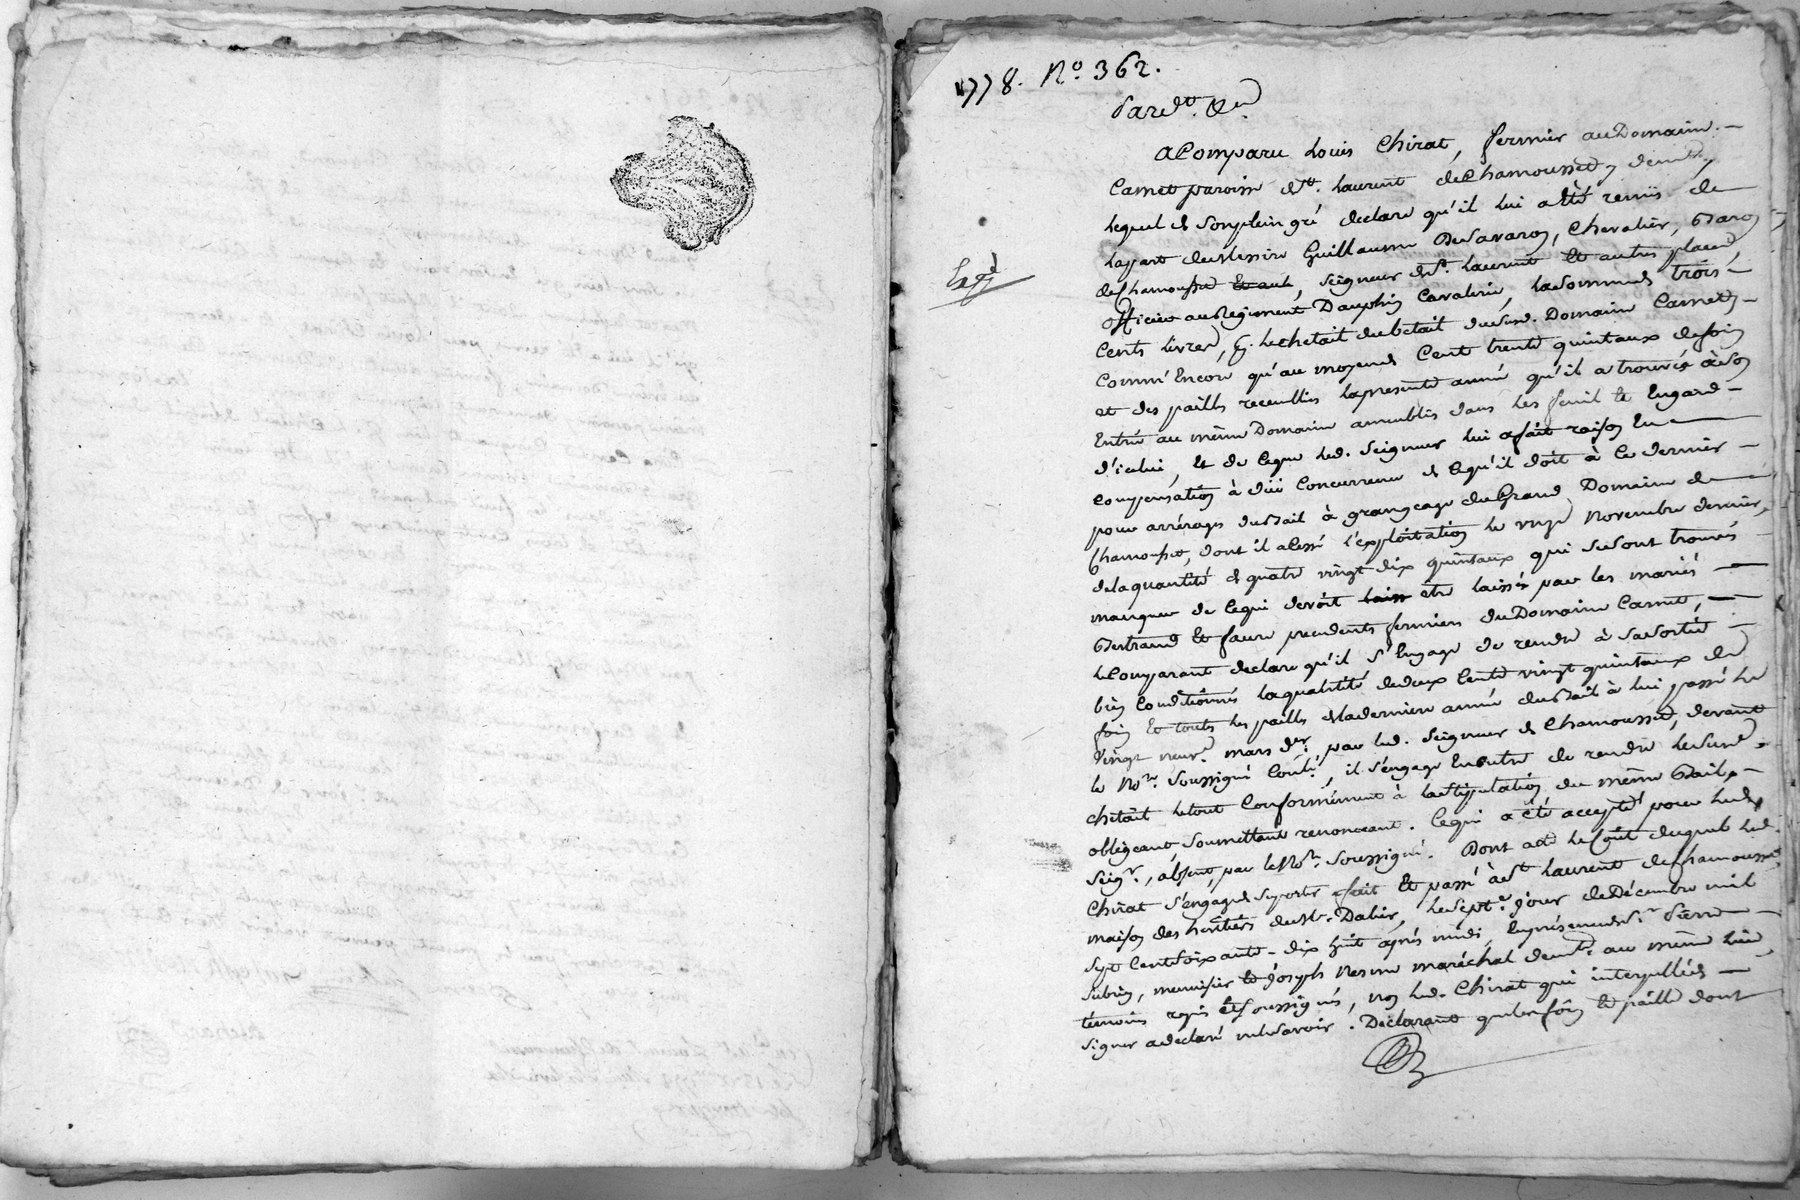 1778. N.º 362.
Pardt. &a.
a Comparu Louis Chirat, fermier au Domaine
Carnet paroisse de St. Laurent de Chamousset, y demt.
Lequel de son plein gré declare qu'il lui a été remis de
la part de Messire Guillaume De Savaron, Chevalier, Baron
de Chamousset, Seigneur de St. Laurent et autres places,
officier au Regiment Dauphin Cavalerie, la Somme de trois
cents Livres, p. le chetail du betail du sud. Domaine Carnet,
Comm' Encore qu'au moyen de Cent trente quintaux de foin
et des pailles recueillies la presente année qu'il a trouvés à son
Entrée au même Domaine ameublis dans les fenil et Engard
d'icelui, et de ce que led. Seigneur lui a fait raison En
Compensation à düe Concurrence de ce qu'il doit à ce dernier
pour arrérages du Bail à grangeage du Grand Domaine de
Chamousset, dont il a cessé l'exploitation le onze Novembre dernier,
de la quantité de quatre vingt dix quintaux qui se sont trouvés
manquer de ce qui devoit laiss etre laissés par les mariés
Bertrand et faure precedents fermiers du Domaine Carnet,
le Comparant declare qu'il s'Engage de rendre à sa sortie
bien Conditionnés la quantité de deux Cents vingt quintaux de
foin et touts les pailles de la derniere année du Bail à lui passé le
vingt neuf mars der. par led. Seigneur de Chamousset, devant
le Nore. Soussigné Contr., il s'engage Enoutre de rendre le susd.
chetail le tout Conformément à la stipulation du même Bail,
obligeant soumettant renonceant. Ce qui a été accepté pour led.
Seigr., absent, par le Nore. Soussigné. Dont acte le coût duquel led.
Chirat s'engage de suporter fait et passé à St. Laurent de Chamousset
maison des heritiers du Sr. Dalin, le sept. jour de Décembre mil
sept Cent soixante-dix huit après midi, En présence de Sr. Pierre
Subrin, menuisier et Joseph Nesme maréchal demts. au même lieu,
témoins requis et soussignés, non led. Chirat qui interpellé de
signer a declaré ne le savoir. Declarant que les foin et paille dont